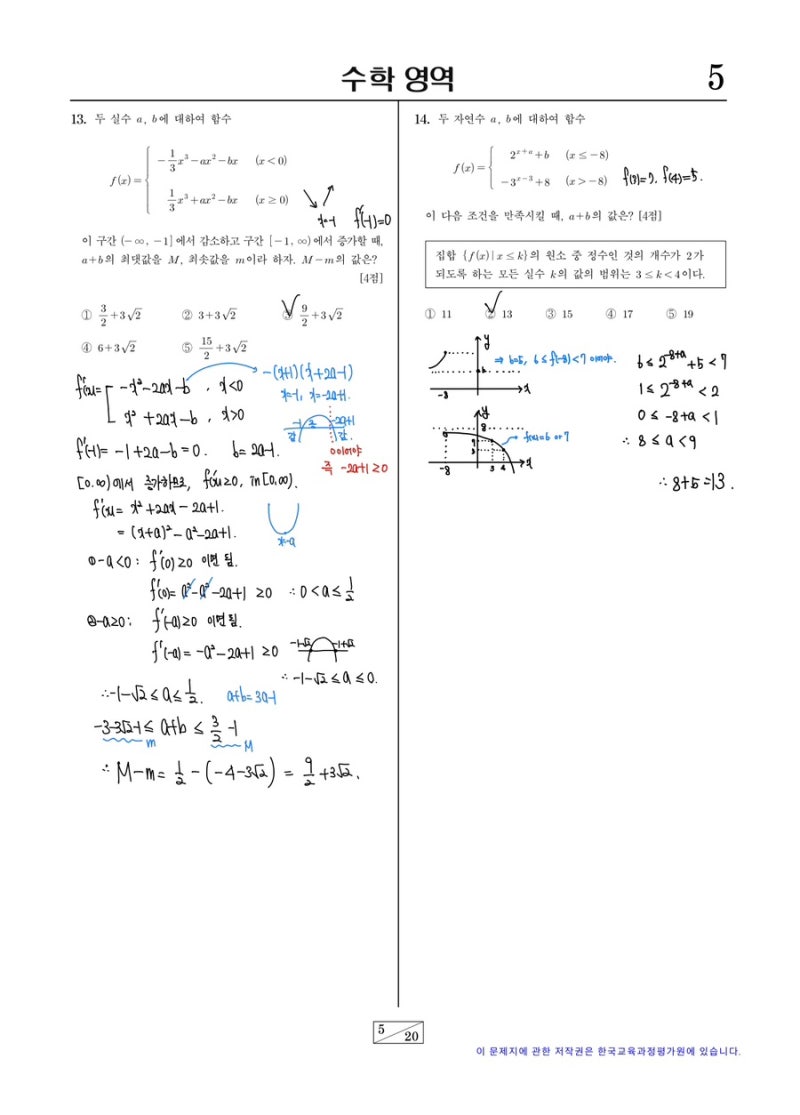 수학 영역
5
13. 두 실수 a, b에 대하여 함수
f(x) = { -1/3 x³ - ax² - bx (x < 0)
1/3 x³ + ax² - bx (x ≥ 0)
x=-1 f'(-1)=0
이 구간 (-∞, -1]에서 감소하고 구간 [-1, ∞)에서 증가할 때,
a+b의 최댓값을 M, 최솟값을 m이라 하자. M-m의 값은?
[4점]
① 3/2 + 3√2 ② 3+3√2 ③ 9/2 + 3√2
④ 6+3√2 ⑤ 15/2 + 3√2
f'(x) = [ -x² - 2ax - b , x<0
x² + 2ax - b , x>0
-(x+1)(x+2a-1)
x=-1, x=-2a+1.
-1 -2a+1
감 증 감
0이어야
즉 -2a+1≥0
f'(-1) = -1+2a-b = 0. b=2a-1.
[0,∞)에서 증가하므로, f'(x)≥0, in [0,∞).
f'(x) = x² + 2ax - 2a+1.
= (x+a)² - a² - 2a+1.
x=-a
①-a<0 : f'(0)≥0 이면 됨.
f'(0) = a²-a²-2a+1 ≥0 ∴ 0<a≤1/2
②-a≥0 : f'(-a)≥0 이면 됨.
f'(-a) = -a²-2a+1 ≥0
-1-√2 -1+√2
∴ -1-√2 ≤ a ≤ 0.
∴ -1-√2 ≤ a ≤ 1/2. a+b=3a-1
-3-3√2-1 ≤ a+b ≤ 3/2 -1
m M
∴ M-m = 1/2 - (-4-3√2) = 9/2 + 3√2.
14. 두 자연수 a, b에 대하여 함수
f(x) = { 2^(x+a) + b (x ≤ -8)
-3^(x-3) + 8 (x > -8)
f(3)=7, f(4)=5.
이 다음 조건을 만족시킬 때, a+b의 값은? [4점]
집합 {f(x) | x ≤ k}의 원소 중 정수인 것의 개수가 2가
되도록 하는 모든 실수 k의 값의 범위는 3 ≤ k < 4이다.
① 11 ② 13 ③ 15 ④ 17 ⑤ 19
y
b
-8 x
⇒ b=5, 6≤f(-8)<7 이어야.
y
8
7
-8 3 4 x
f(x)=6 or 7
6 ≤ 2^(-8+a) + 5 < 7
1 ≤ 2^(-8+a) < 2
0 ≤ -8+a < 1
∴ 8 ≤ a < 9
∴ 8+5=13.
5
20
이 문제지에 관한 저작권은 한국교육과정평가원에 있습니다.